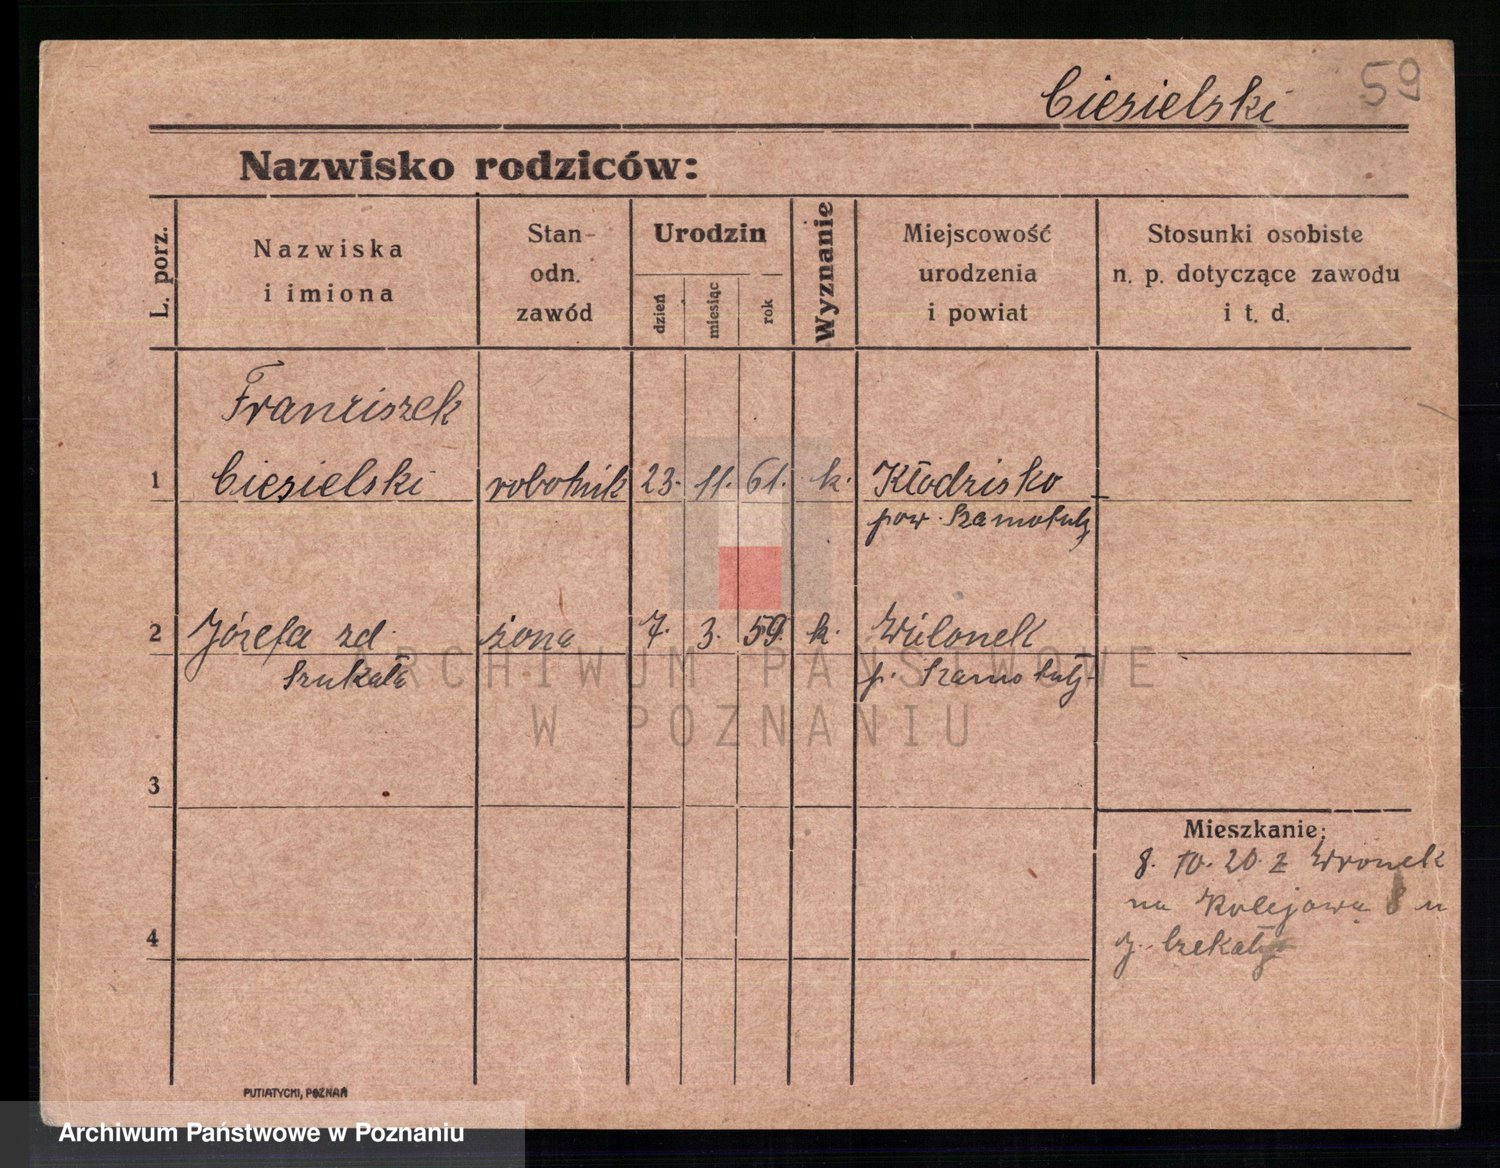 Ciesielski 59
Nazwisko rodziców:
L. porz.
Nazwiska
i imiona
Stan-
odn.
zawód
Urodzin
dzień
miesiąc
rok
Wyznanie
Miejscowość
urodzenia
i powiat
Stosunki osobiste
n. p. dotyczące zawodu
i t. d.
Franciszek
1 Ciesielski robotnik 23. 11. 61. k. Kłodzisko
pow. Szamotuły
2 Józefa zd. żona 7. 3. 59. k. Wilonek
Szukała p. Szamotuły
ARCHIWUM PAŃSTWOWE
W POZNANIU
3
Mieszkanie:
8. 10. 20 z Wronek
na Kolejowa 8 u
J.
4
PUTIATYCKI, POZNAŃ
Archiwum Państwowe w Poznaniu